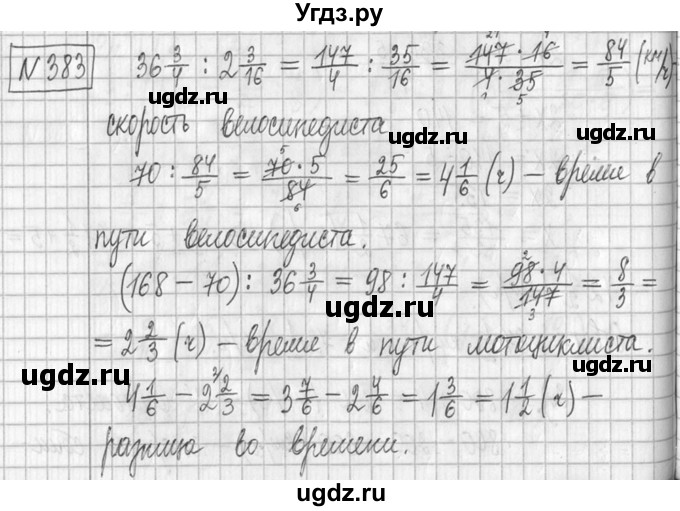 Угдз.ру
N 383 36 3/4 : 2 3/16 = 147/4 : 35/16 = 147 · 16 / 4 · 35 = 84/5 (км/ч) -
ugdz.ru ugdz.ru
скорость велосипедиста
ugdz.ru ugdz.ru
70 : 84/5 = 70 · 5 / 84 = 25/6 = 4 1/6 (ч) – время в
ugdz.ru
пути велосипедиста.
ugdz.ru
(168 – 70) : 36 3/4 = 98 : 147/4 = 98 · 4 / 147 = 8/3 =
ugdz.ru
= 2 2/3 (ч) – время в пути мотоциклиста.
ugdz.ru ugdz.ru
4 1/6 – 2 2/3 = 3 7/6 – 2 4/6 = 1 3/6 = 1 1/2 (ч) –
ugdz.ru
разница во времени.
ugdz.ru
ugdz.ru